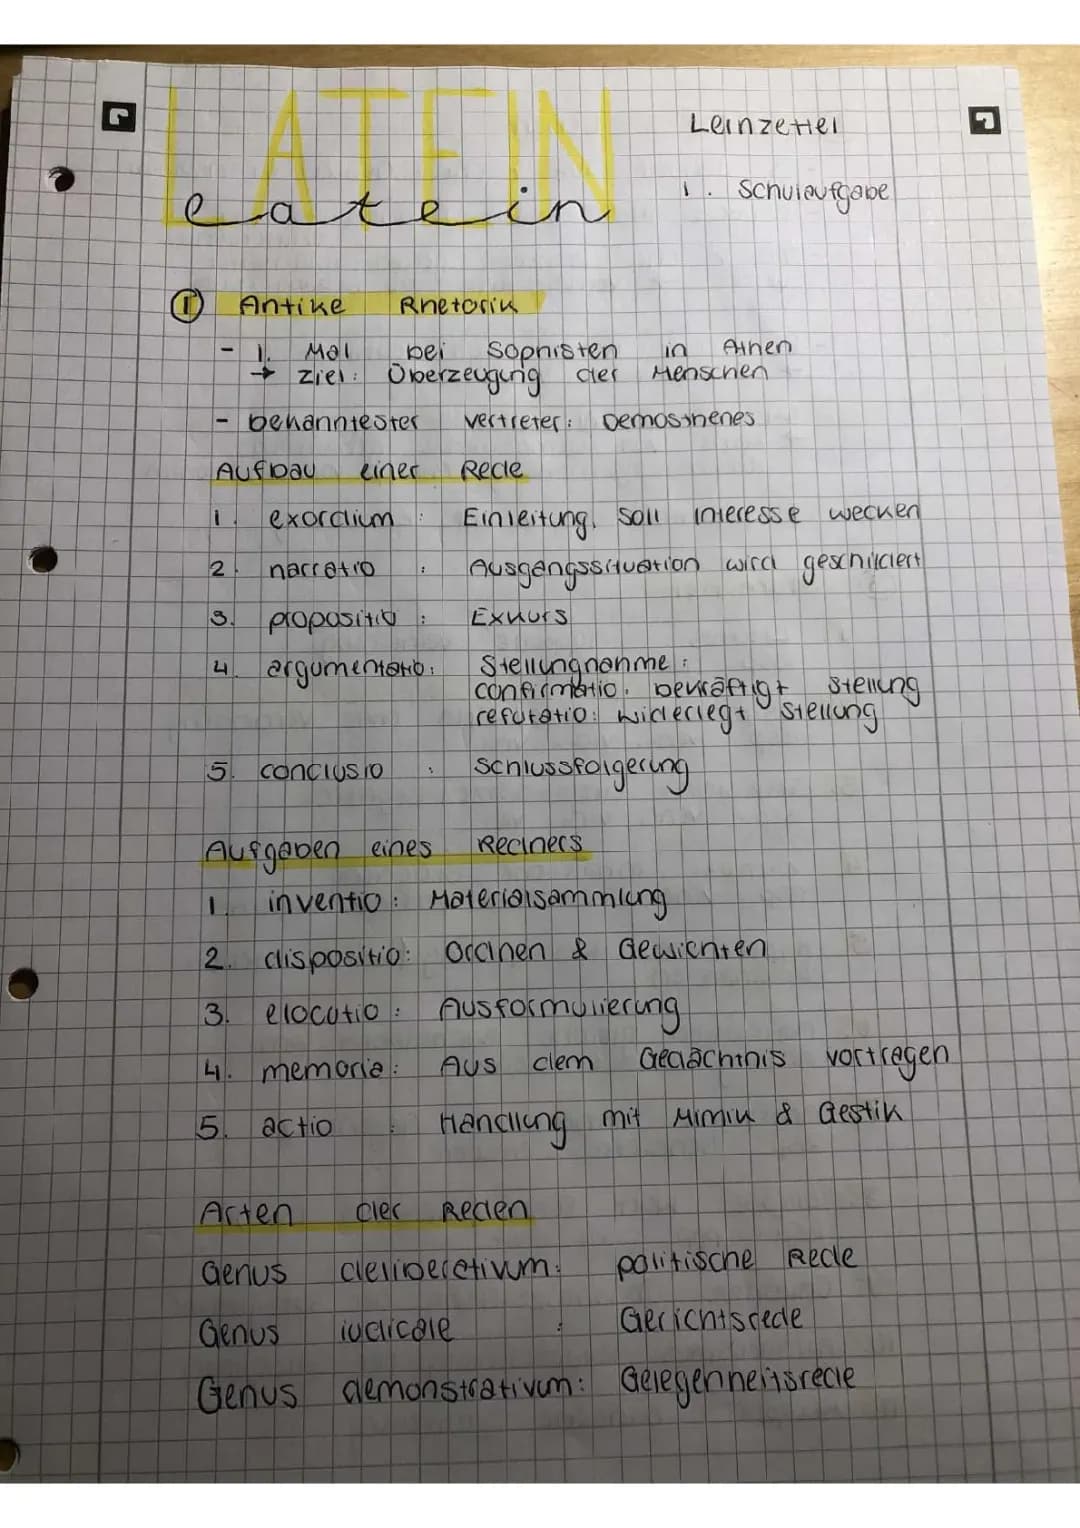 LATEIN
Latein
Lernzettel
1. Schulaufgabe
① Antike Rhetorik
- 1. Mal bei Sophisten in Athen
→ Ziel: Überzeugung der Menschen
- bekanntester Vertreter: Demosthenes
Aufbau einer Rede
1. exordium: Einleitung, soll Interesse wecken
2. narratio: Ausgangssituation wird geschildert
3. propositio: Exkurs
4. argumentatio: Stellungnahme:
confirmatio: bekräftigt Stellung
refutatio: widerlegt Stellung
5. conclusio: Schlussfolgerung
Aufgaben eines Redners
1. inventio: Materialsammlung
2. dispositio: Ordnen & Gewichten
3. elocutio: Ausformulierung
4. memoria: Aus dem Gedächtnis vortragen
5. actio: Handlung mit Mimik & Gestik
Arten der Reden
Genus deliberativum: politische Rede
Genus iudicale: Gerichtsrede
Genus demonstrativum: Gelegenheitsrede